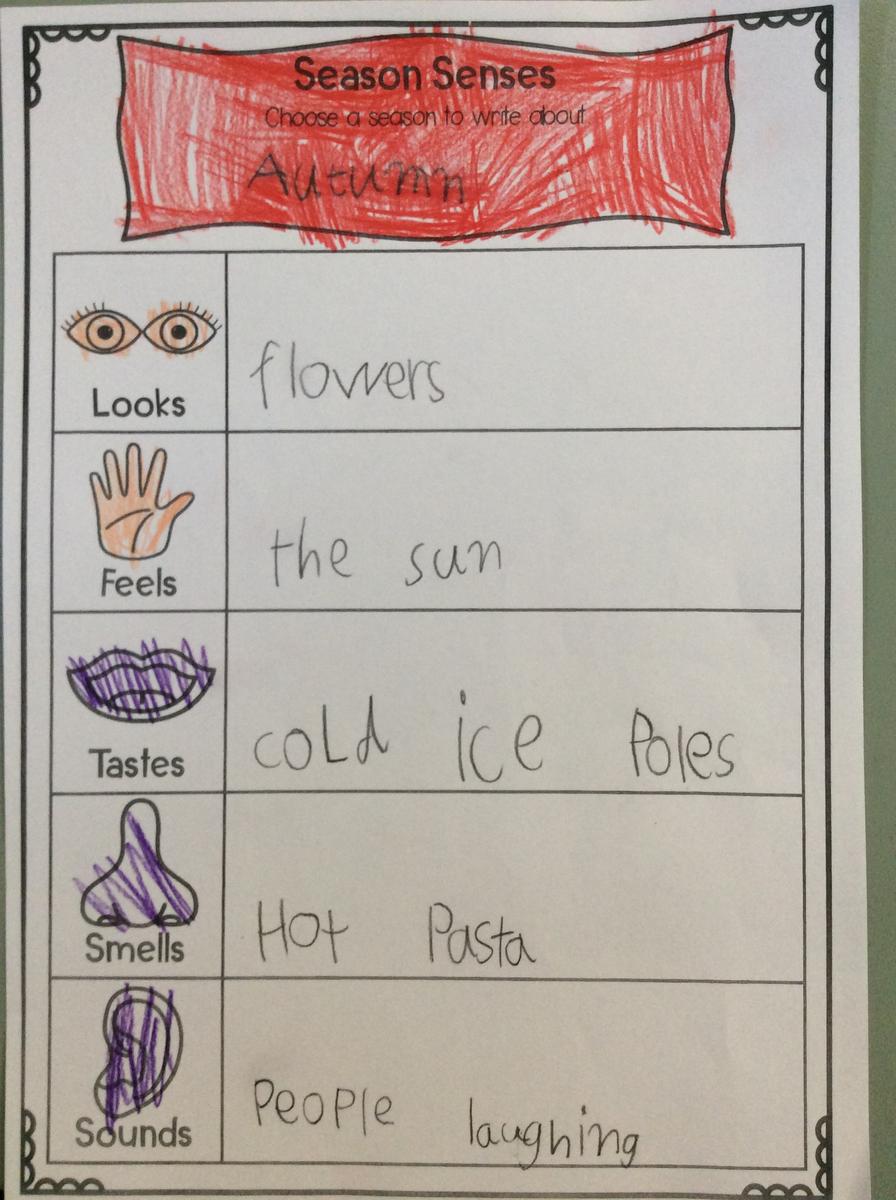 Season Senses
Choose a season to write about
Autumn
Looks
flowers
Feels
the sun
Tastes
cold ice Poles
Smells
Hot Pasta
Sounds
People laughing